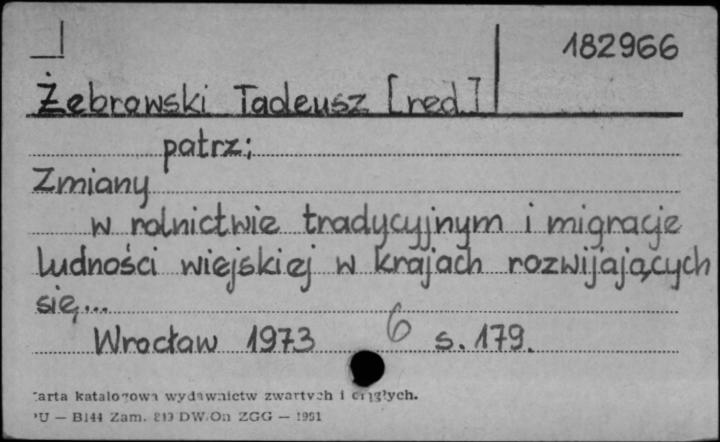 182966
Żebrowski Tadeusz [red.]
patrz;
Zmiany
w rolnictwie tradycyjnym i migracje
ludności wiejskiej w krajach rozwijających
się...
Wrocław 1973 6 s. 179.
Karta katalogowa wydawnictw zwartych i ciągłych.
PU — B144 Zam. 819 DW.On ZGG — 1981